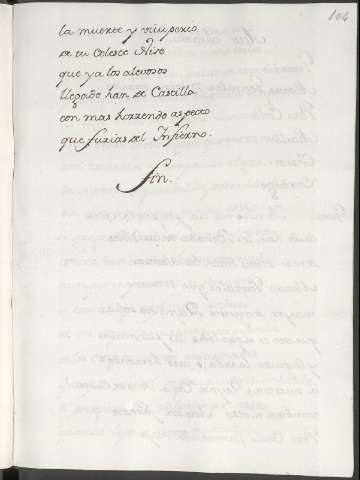 104
la muerte y vituperio
de tu celeste Nise
que ya los alevosos
llegado han de Castilla
con mas horrendo aspecto
que furias del Infierno.
Fin.